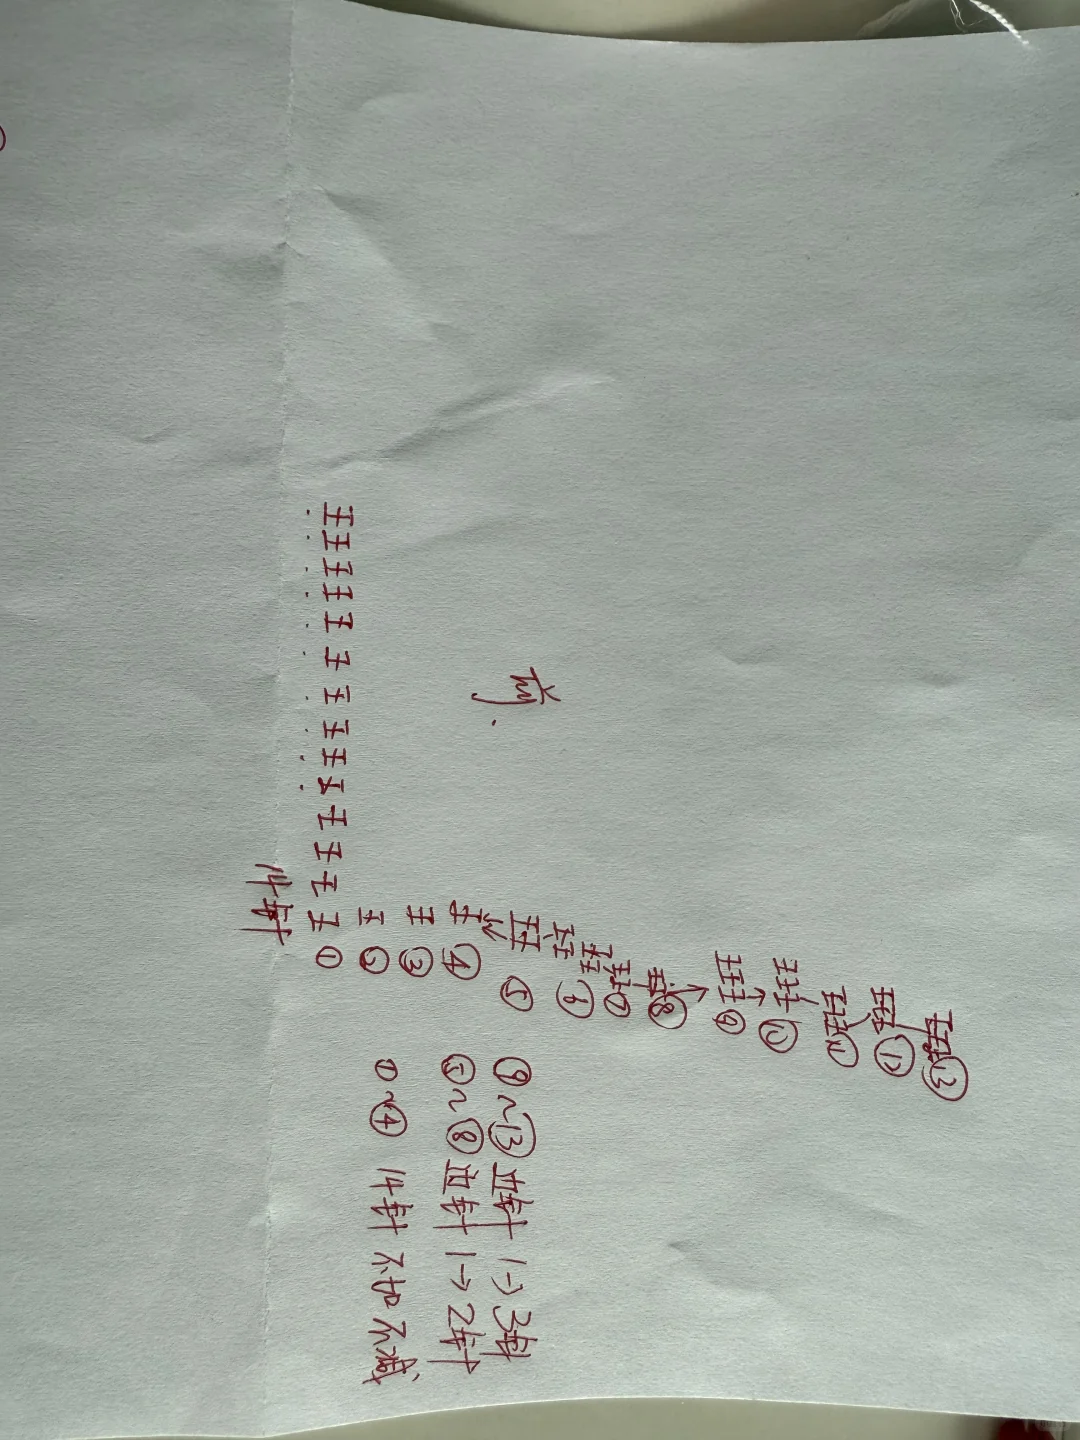 ⑬
⑫
⑪
⑩
⑨
⑧
⑦
⑥
前. ⑤
⑨~⑬ 针 1→3针
④
⑤~⑧ 针 1→2针
③
②
①~④ 14针 不加不减
①
14针